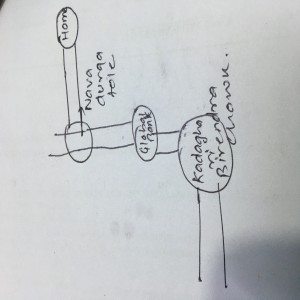 Home
Nava
durga
tole
Global
Bank
Kadagha
ri
Birendra
Chowk.